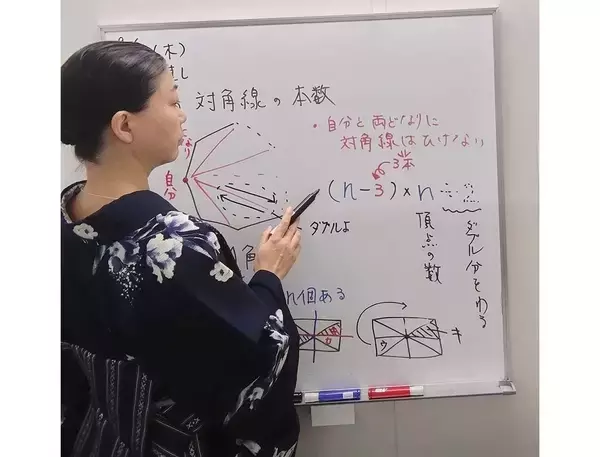 (木)
対角線の本数
・自分と両どなりに
対角線はひけない
3本
(n-3)×n
なり
自分
ダブルよ
頂点の数
ダブル分をわる
角
n個ある
キ
ウ